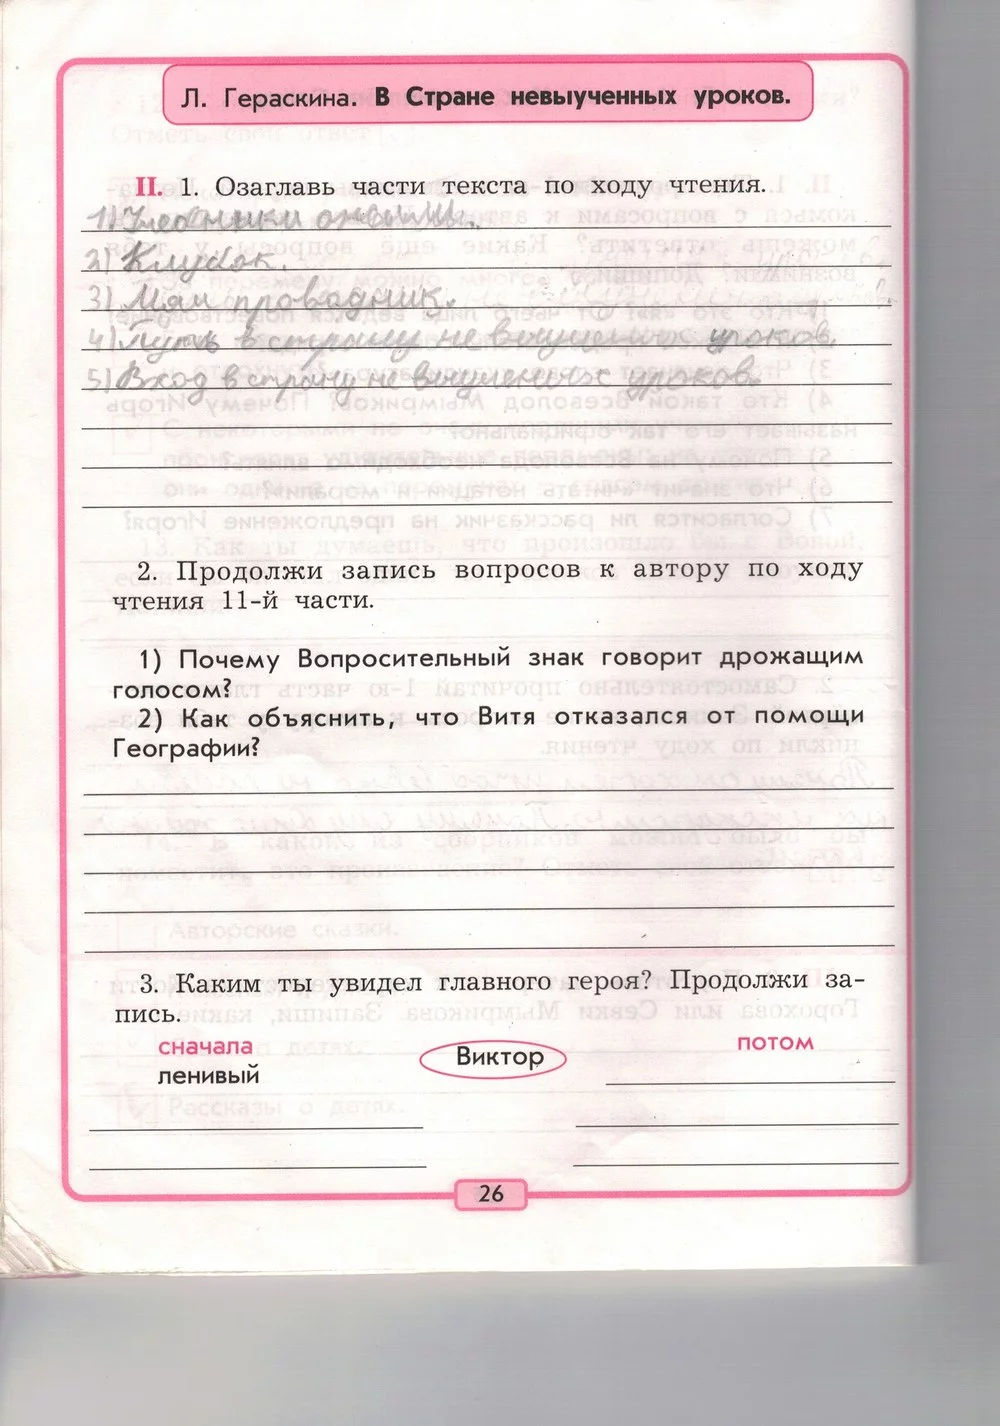 Л. Гераскина. В Стране невыученных уроков.
II. 1. Озаглавь части текста по ходу чтения.
1)
2) Клубок.
3) Мяч проводник.
4) Путь в страну не выученых уроков.
5) Вход в страну не выученых уроков.
2. Продолжи запись вопросов к автору по ходу
чтения 11-й части.
1) Почему Вопросительный знак говорит дрожащим
голосом?
2) Как объяснить, что Витя отказался от помощи
Географии?
3. Каким ты увидел главного героя? Продолжи за-
пись.
сначала Виктор потом
ленивый
26